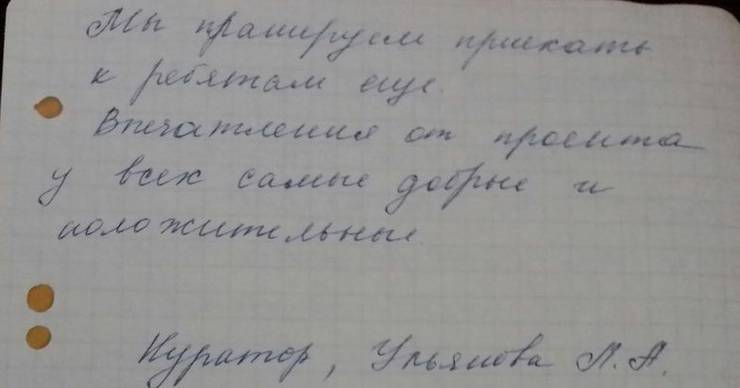 Мы планируем приехать
к ребятам еще.
Впечатления от проекта
у всех самые добрые и
положительные.
Куратор, Ульянова Л. А.